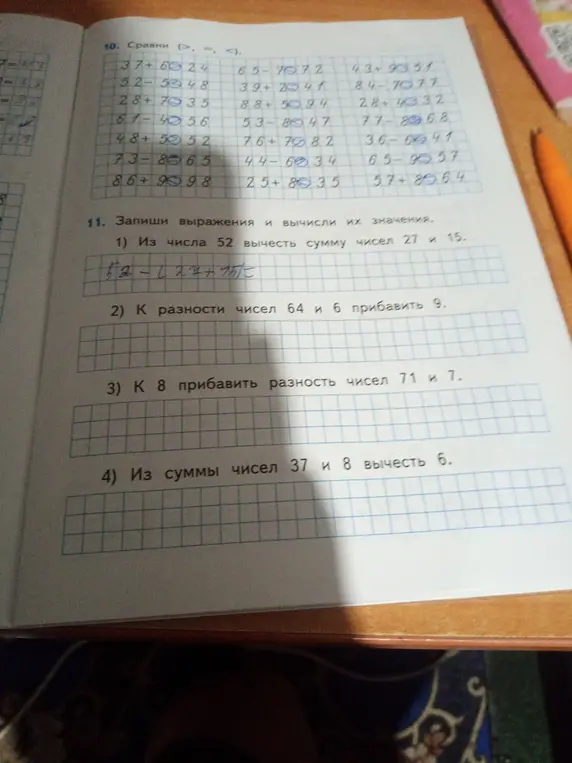 10. Сравни (>, =, <).
37+6 24 65-7 72 43+9 51
52-5 48 39+2 41 84-7 77
28+7 35 88+5 94 28+4 32
61-4 56 53-8 47 77-8 68
48+5 52 76+7 82 36-6 41
73-8 65 44-6 34 65-9 57
86+9 98 25+8 35 57+8 64
11. Запиши выражения и вычисли их значения.
1) Из числа 52 вычесть сумму чисел 27 и 15.
52-(27+15)=
2) К разности чисел 64 и 6 прибавить 9.
3) К 8 прибавить разность чисел 71 и 7.
4) Из суммы чисел 37 и 8 вычесть 6.